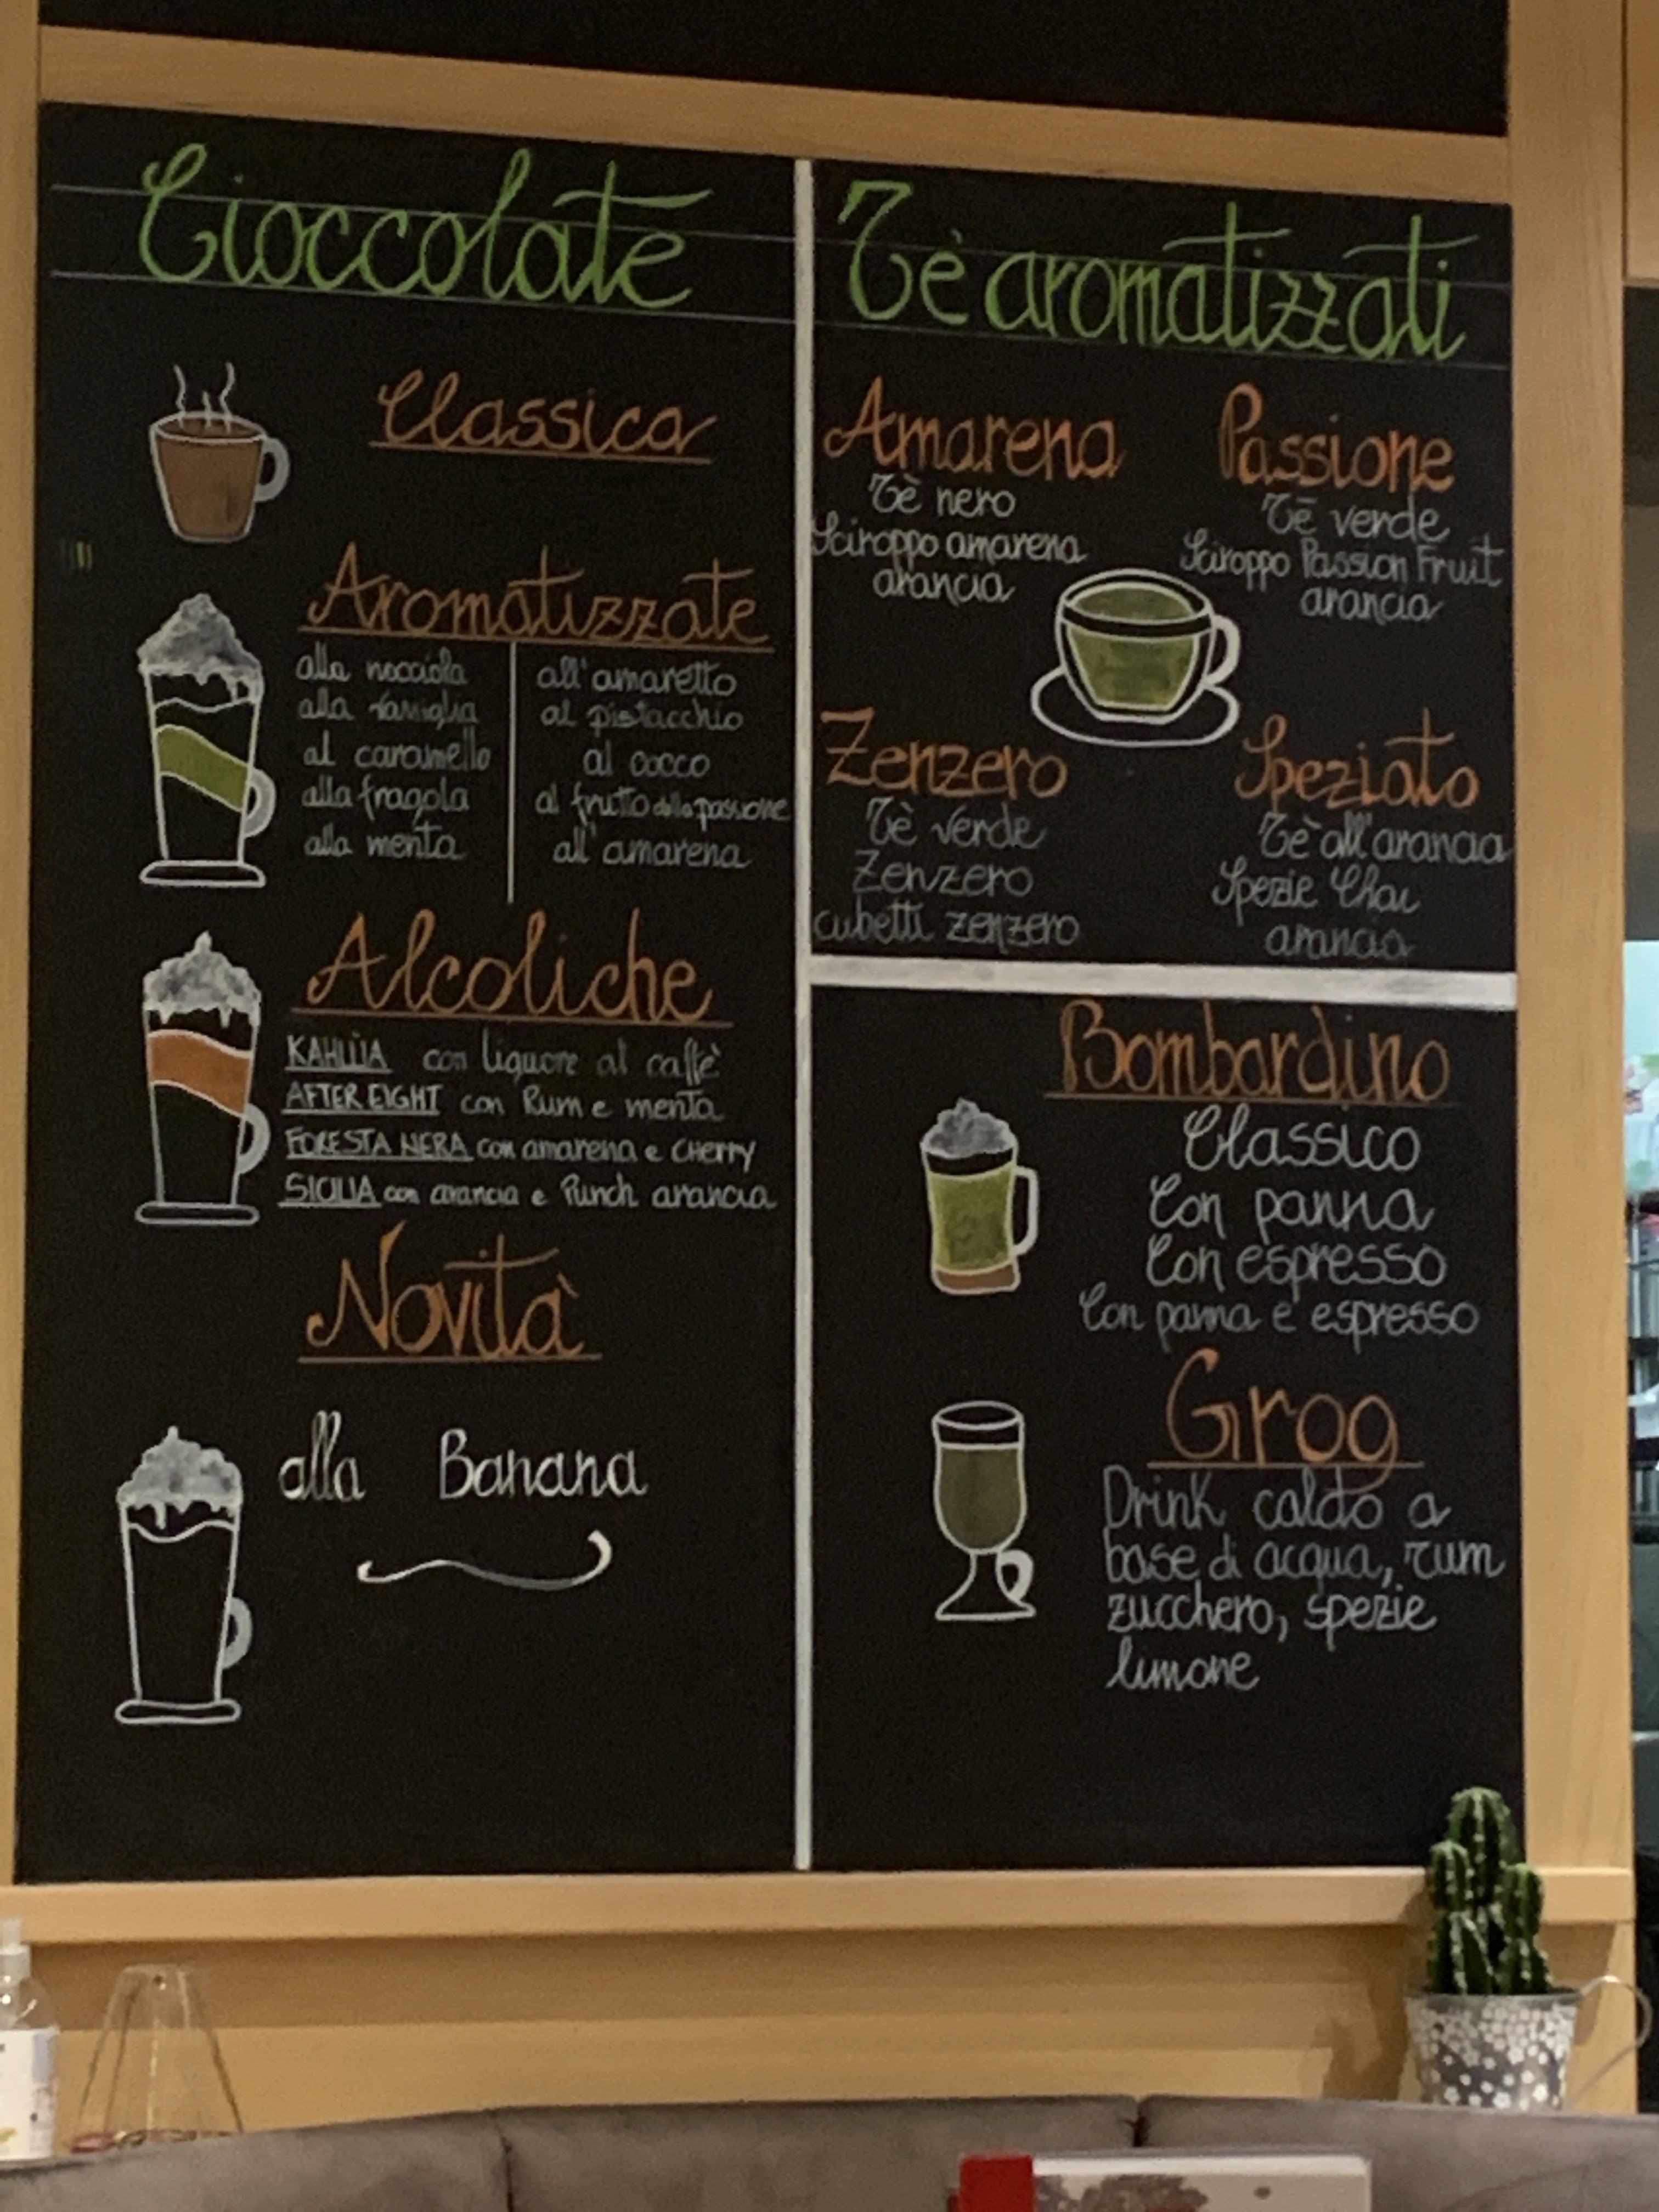 Cioccolate
Classica
Aromatizzate
alla nocciola
alla vaniglia
al caramello
alla fragola
alla menta
all'amaretto
al pistacchio
al cocco
al frutto della passione
all'amarena
Alcoliche
KAHLÙA con liquore al caffè
AFTER EIGHT con Rum e menta
FORESTA NERA con amarena e CHERRY
SICILIA con arancia e Punch arancia
Novità
alla Banana
Tè aromatizzati
Amarena
Tè nero
Sciroppo amarena
arancia
Passione
Tè verde
Sciroppo Passion Fruit
arancia
Zenzero
Tè verde
Zenzero
cubetti zenzero
Speziato
Tè all'arancia
Spezie Chai
arancia
Bombardino
Classico
Con panna
Con espresso
Con panna e espresso
Grog
Drink caldo a
base di acqua, rum
zucchero, spezie
limone